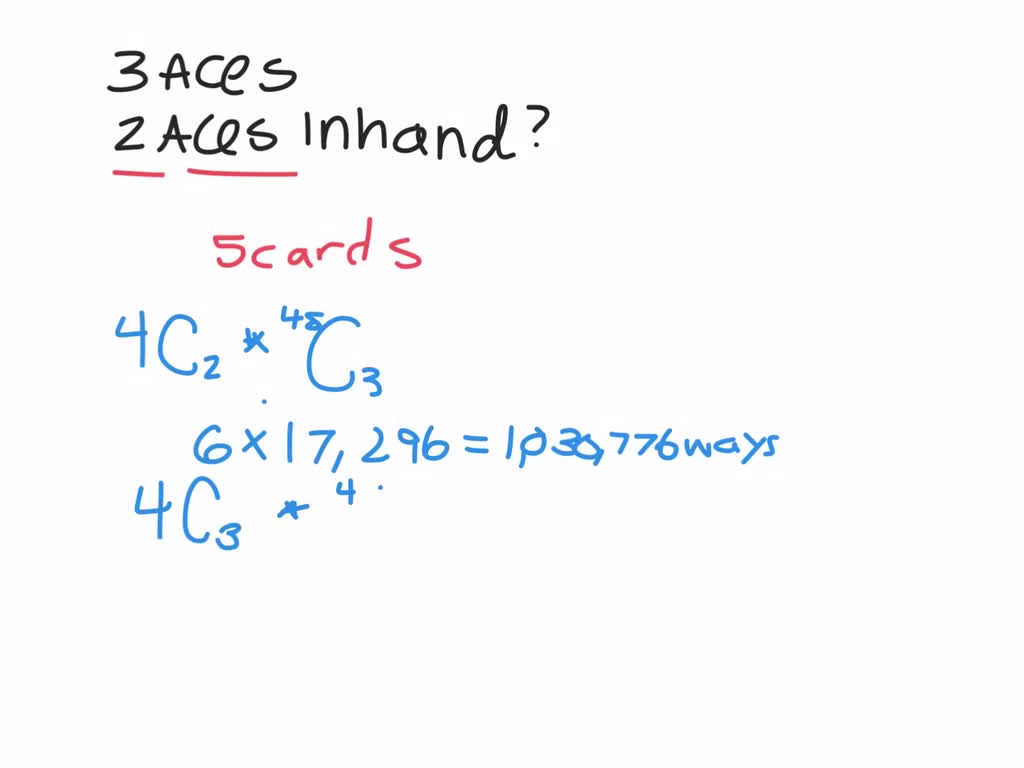 3 Aces
2 Aces in hand?
5 cards
4C2 * 48C3
6 × 17,296 = 1,036,776 ways
4C3 * 4